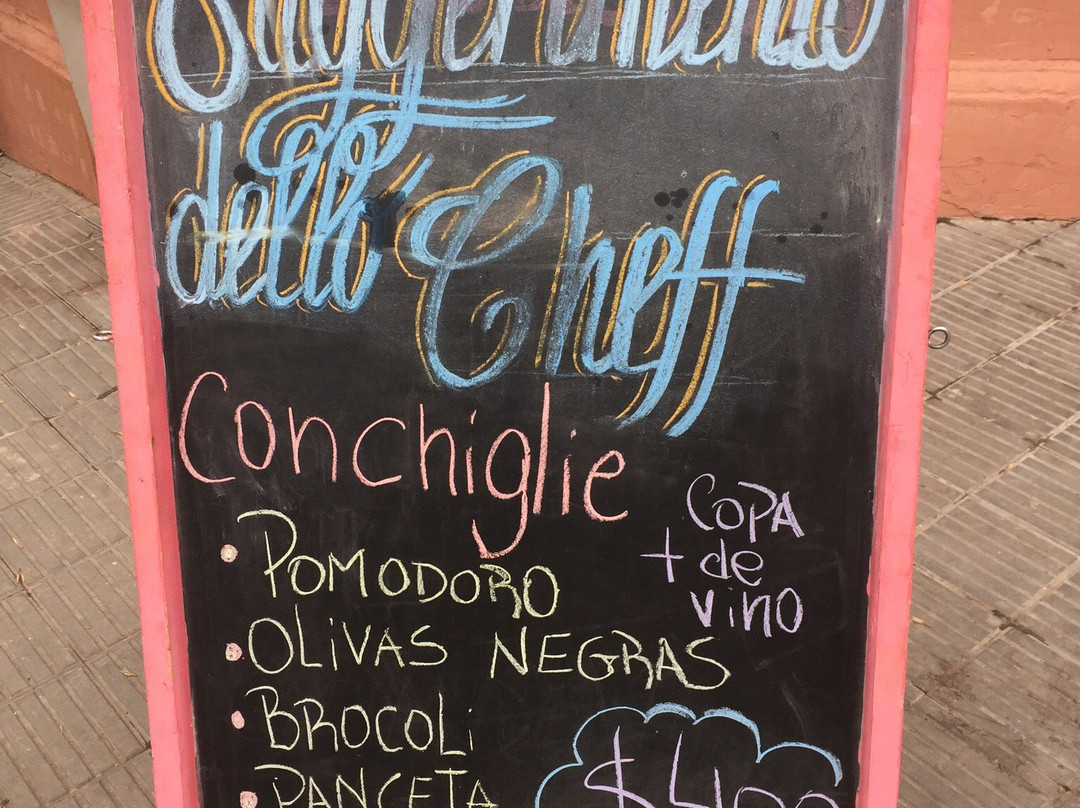 Suggerimento
dello Cheff
Conchiglie
• POMODORO
• OLIVAS NEGRAS
• BROCOLi
• PANCETA
COPA
+ de
vino
$400